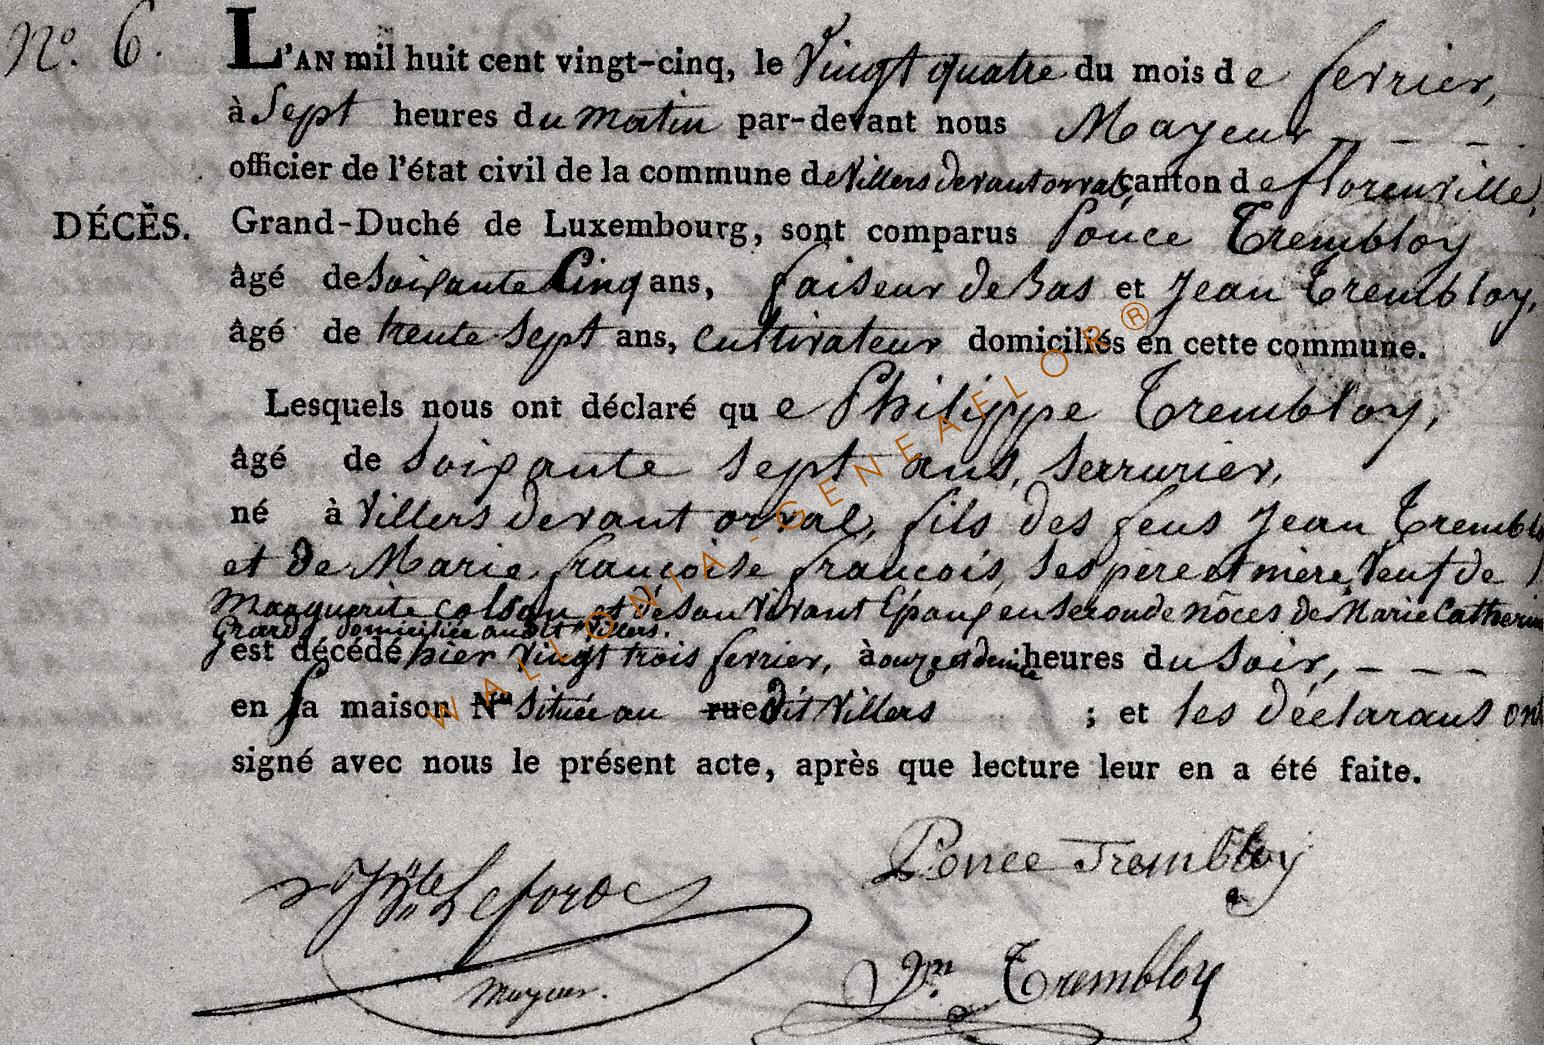 N.º 6.
L'AN mil huit cent vingt-cinq, le Vingt quatre du mois de fevrier,
à Sept heures du matin par-devant nous Mayeur
officier de l'état civil de la commune de Villers devant orval, canton de florenville,
DÉCÈS.
Grand-Duché de Luxembourg, sont comparus Ponce Trembloy
âgé de Soixante Cinq ans, faiseur de Bas et Jean Trembloy,
âgé de trente Sept ans, cultivateur domiciliés en cette commune.
Lesquels nous ont déclaré que Philippe Trembloy,
âgé de Soixante Sept ans, Serrurier,
né à Villers devant orval, fils des feus Jean Trembl
et de Marie françoise françois, Ses père et mère, Veuf de
Marguerite Colson et de Son Vivant Epoux en Seconde nôces de Marie Catherin
domiciliée audit Villers.
est décédé hier Vingt trois fevrier, à onze et demie heures du Soir,
en Sa maison Nº Située au rue dit Villers ; et les déclarans ont
signé avec nous le présent acte, après que lecture leur en a été faite.
Ponce Trembloy
Lefort
Mayeur.
Jn Trembloy
WALLONIA-GENEAELOR®